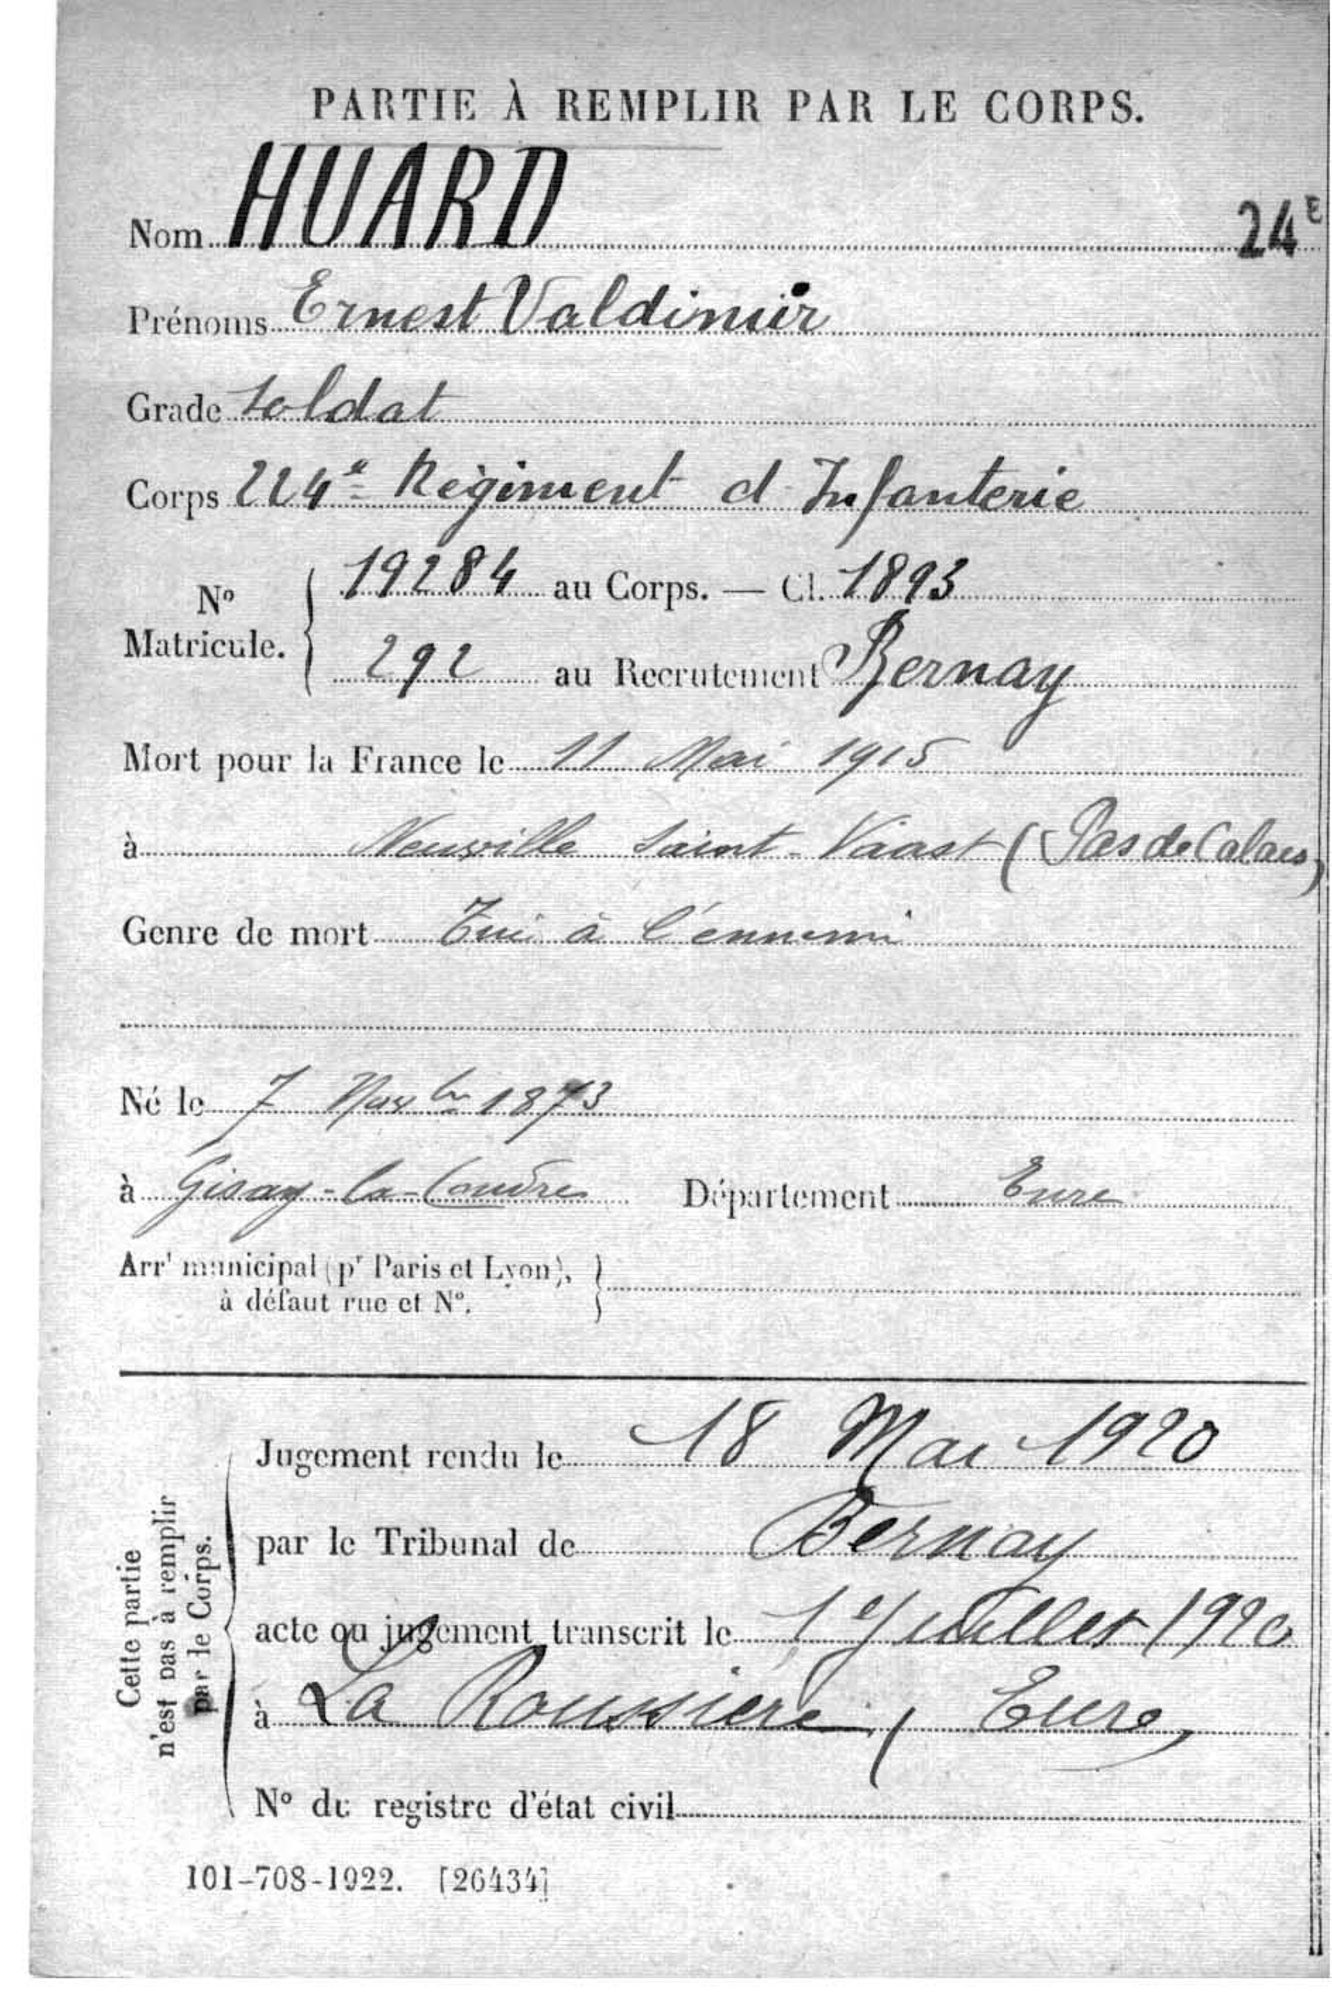 PARTIE À REMPLIR PAR LE CORPS.
Nom HUARD 24E
Prénoms Ernest Valdimir
Grade soldat
Corps 224e Régiment d'Infanterie
No Matricule. 19284 au Corps. — Cl. 1893
292 au Recrutement Bernay
Mort pour la France le 11 Mai 1915
à Neuville Saint-Vaast (Pas de Calais)
Genre de mort Tué à l'ennemi
Né le 7 Novbre 1873
à Gisay-la-Coudre Département Eure
Arrt municipal (pr Paris et Lyon),
à défaut rue et No.
Cette partie
n'est pas à remplir
par le Corps.
Jugement rendu le 18 Mai 1920
par le Tribunal de Bernay
acte ou jugement transcrit le 1er Juillet 1920
à La Roussière, Eure,
No du registre d'état civil
101-708-1922. [26434]